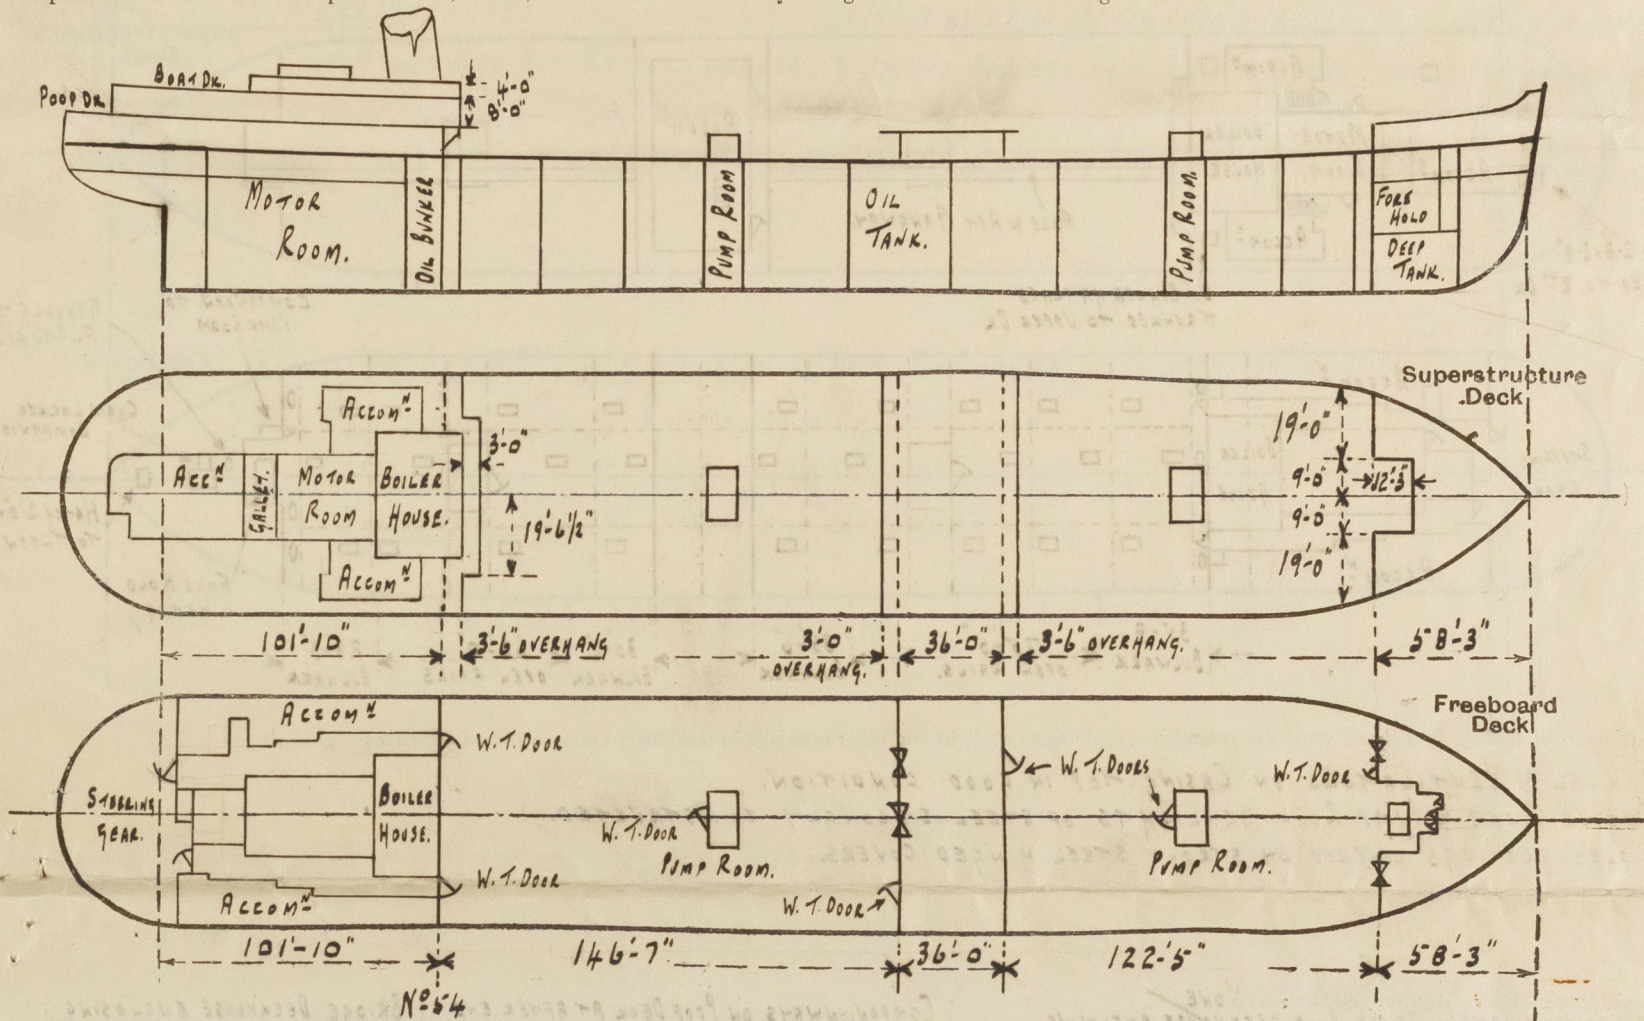 POOP DK.
BOAT DK.
4'-0"
8'-0"
MOTOR
ROOM.
OIL BUNKER
PUMP ROOM
OIL
TANK.
PUMP ROOM.
FORE
HOLD
DEEP
TANK.
Superstructure
Deck
ACCOMN
ACCN
GALLEY.
MOTOR
ROOM
BOILER
HOUSE.
ACCOMN
3'-0"
19'-6 1/2"
19'-0"
9'-0"
12'-3"
9'-0"
19'-0"
101'-10"
3'-6" OVERHANG
3'-0"
OVERHANG.
36'-0"
3'-6" OVERHANG.
58'-3"
Freeboard
Deck
ACCOMN
W.T. DOOR
STEERING
GEAR.
BOILER
HOUSE.
W.T. DOOR
ACCOMN
W.T. DOOR
PUMP ROOM.
W.T. DOOR
W.T. DOORS
PUMP ROOM.
W.T. DOOR
101'-10"
146'-7"
36'-0"
122'-5"
58'-3"
No 54